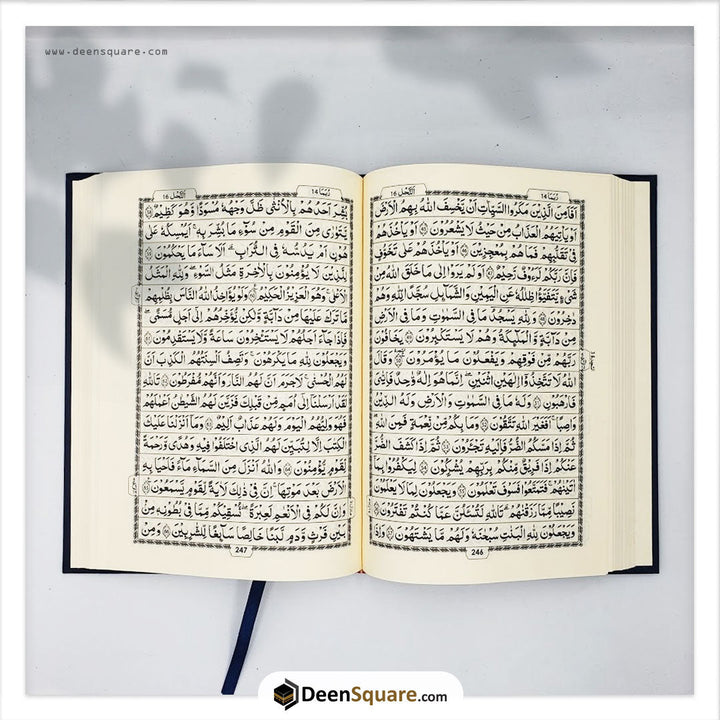 www.deensquare.com
رُبَمَا ١٤
اَلنَّحْل ١٦
اَفَاَمِنَ الَّذِيْنَ مَكَرُوا السَّيِّاٰتِ اَنْ يَّخْسِفَ اللّٰهُ بِهِمُ الْاَرْضَ
اَوْ يَاْتِيَهُمُ الْعَذَابُ مِنْ حَيْثُ لَا يَشْعُرُوْنَ ۙ﴿۴۵﴾ اَوْ يَاْخُذَهُمْ
فِيْ تَقَلُّبِهِمْ فَمَا هُمْ بِمُعْجِزِيْنَ ۙ﴿۴۶﴾ اَوْ يَاْخُذَهُمْ عَلٰى تَخَوُّفٍ
فَاِنَّ رَبَّكُمْ لَرَءُوْفٌ رَّحِيْمٌ ﴿۴۷﴾ اَوَ لَمْ يَرَوْا اِلٰى مَا خَلَقَ اللّٰهُ مِنْ
شَيْءٍ يَّتَفَيَّؤُا ظِلٰلُهٗ عَنِ الْيَمِيْنِ وَالشَّمَآئِلِ سُجَّدًا لِّلّٰهِ وَهُمْ
دٰخِرُوْنَ ﴿۴۸﴾ وَلِلّٰهِ يَسْجُدُ مَا فِي السَّمٰوٰتِ وَمَا فِي الْاَرْضِ
مِنْ دَآبَّةٍ وَّالْمَلٰٓئِكَةُ وَهُمْ لَا يَسْتَكْبِرُوْنَ ﴿۴۹﴾ يَخَافُوْنَ
رَبَّهُمْ مِّنْ فَوْقِهِمْ وَيَفْعَلُوْنَ مَا يُؤْمَرُوْنَ ﴿۵۰﴾ وَقَالَ
اللّٰهُ لَا تَتَّخِذُوْٓا اِلٰهَيْنِ اثْنَيْنِ ۚ اِنَّمَا هُوَ اِلٰهٌ وَّاحِدٌ ۚ فَاِيَّايَ
فَارْهَبُوْنِ ﴿۵۱﴾ وَلَهٗ مَا فِي السَّمٰوٰتِ وَالْاَرْضِ وَلَهُ الدِّيْنُ
وَاصِبًا ؕ اَفَغَيْرَ اللّٰهِ تَتَّقُوْنَ ﴿۵۲﴾ وَمَا بِكُمْ مِّنْ نِّعْمَةٍ فَمِنَ اللّٰهِ
ثُمَّ اِذَا مَسَّكُمُ الضُّرُّ فَاِلَيْهِ تَجْـَٔرُوْنَ ﴿۵۳﴾ ثُمَّ اِذَا كَشَفَ الضُّرَّ
عَنْكُمْ اِذَا فَرِيْقٌ مِّنْكُمْ بِرَبِّهِمْ يُشْرِكُوْنَ ﴿۵۴﴾ لِيَكْفُرُوْا بِمَآ
اٰتَيْنٰهُمْ ؕ فَتَمَتَّعُوْا ۟ فَسَوْفَ تَعْلَمُوْنَ ﴿۵۵﴾ وَيَجْعَلُوْنَ لِمَا لَا يَعْلَمُوْنَ
نَصِيْبًا مِّمَّا رَزَقْنٰهُمْ ؕ تَاللّٰهِ لَتُسْـَٔلُنَّ عَمَّا كُنْتُمْ تَفْتَرُوْنَ ﴿۵۶﴾
وَيَجْعَلُوْنَ لِلّٰهِ الْبَنٰتِ سُبْحٰنَهٗ ۙ وَلَهُمْ مَّا يَشْتَهُوْنَ ﴿۵۷﴾ وَاِذَا
246
رُبَمَا ١٤
اَلنَّحْل ١٦
بُشِّرَ اَحَدُهُمْ بِالْاُنْثٰى ظَلَّ وَجْهُهٗ مُسْوَدًّا وَّهُوَ كَظِيْمٌ ﴿۵۸﴾
يَتَوَارٰى مِنَ الْقَوْمِ مِنْ سُوْٓءِ مَا بُشِّرَ بِهٖ ؕ اَيُمْسِكُهٗ عَلٰى
هُوْنٍ اَمْ يَدُسُّهٗ فِي التُّرَابِ ؕ اَلَا سَآءَ مَا يَحْكُمُوْنَ ﴿۵۹﴾
لِلَّذِيْنَ لَا يُؤْمِنُوْنَ بِالْاٰخِرَةِ مَثَلُ السَّوْءِ ۚ وَلِلّٰهِ الْمَثَلُ
الْاَعْلٰى ؕ وَهُوَ الْعَزِيْزُ الْحَكِيْمُ ﴿۶۰﴾ وَلَوْ يُؤَاخِذُ اللّٰهُ النَّاسَ بِظُلْمِهِمْ
مَّا تَرَكَ عَلَيْهَا مِنْ دَآبَّةٍ وَّلٰكِنْ يُّؤَخِّرُهُمْ اِلٰٓى اَجَلٍ مُّسَمًّى ۚ
فَاِذَا جَآءَ اَجَلُهُمْ لَا يَسْتَاْخِرُوْنَ سَاعَةً وَّلَا يَسْتَقْدِمُوْنَ ﴿۶۱﴾
وَيَجْعَلُوْنَ لِلّٰهِ مَا يَكْرَهُوْنَ وَتَصِفُ اَلْسِنَتُهُمُ الْكَذِبَ اَنَّ
لَهُمُ الْحُسْنٰى ؕ لَا جَرَمَ اَنَّ لَهُمُ النَّارَ وَاَنَّهُمْ مُّفْرَطُوْنَ ﴿۶۲﴾ تَاللّٰهِ
لَقَدْ اَرْسَلْنَآ اِلٰٓى اُمَمٍ مِّنْ قَبْلِكَ فَزَيَّنَ لَهُمُ الشَّيْطٰنُ اَعْمَالَهُمْ
فَهُوَ وَلِيُّهُمُ الْيَوْمَ وَلَهُمْ عَذَابٌ اَلِيْمٌ ﴿۶۳﴾ وَمَآ اَنْزَلْنَا عَلَيْكَ
الْكِتٰبَ اِلَّا لِتُبَيِّنَ لَهُمُ الَّذِي اخْتَلَفُوْا فِيْهِ ۙ وَهُدًى وَّرَحْمَةً
لِّقَوْمٍ يُّؤْمِنُوْنَ ﴿۶۴﴾ وَاللّٰهُ اَنْزَلَ مِنَ السَّمَآءِ مَآءً فَاَحْيَا بِهِ
الْاَرْضَ بَعْدَ مَوْتِهَا ؕ اِنَّ فِيْ ذٰلِكَ لَاٰيَةً لِّقَوْمٍ يَّسْمَعُوْنَ ﴿۶۵﴾
وَاِنَّ لَكُمْ فِي الْاَنْعَامِ لَعِبْرَةً ؕ نُسْقِيْكُمْ مِّمَّا فِيْ بُطُوْنِهٖ مِنْۢ
بَيْنِ فَرْثٍ وَّدَمٍ لَّبَنًا خَالِصًا سَآئِغًا لِّلشّٰرِبِيْنَ ﴿۶۶﴾ وَمِنْ
247
DeenSquare.com